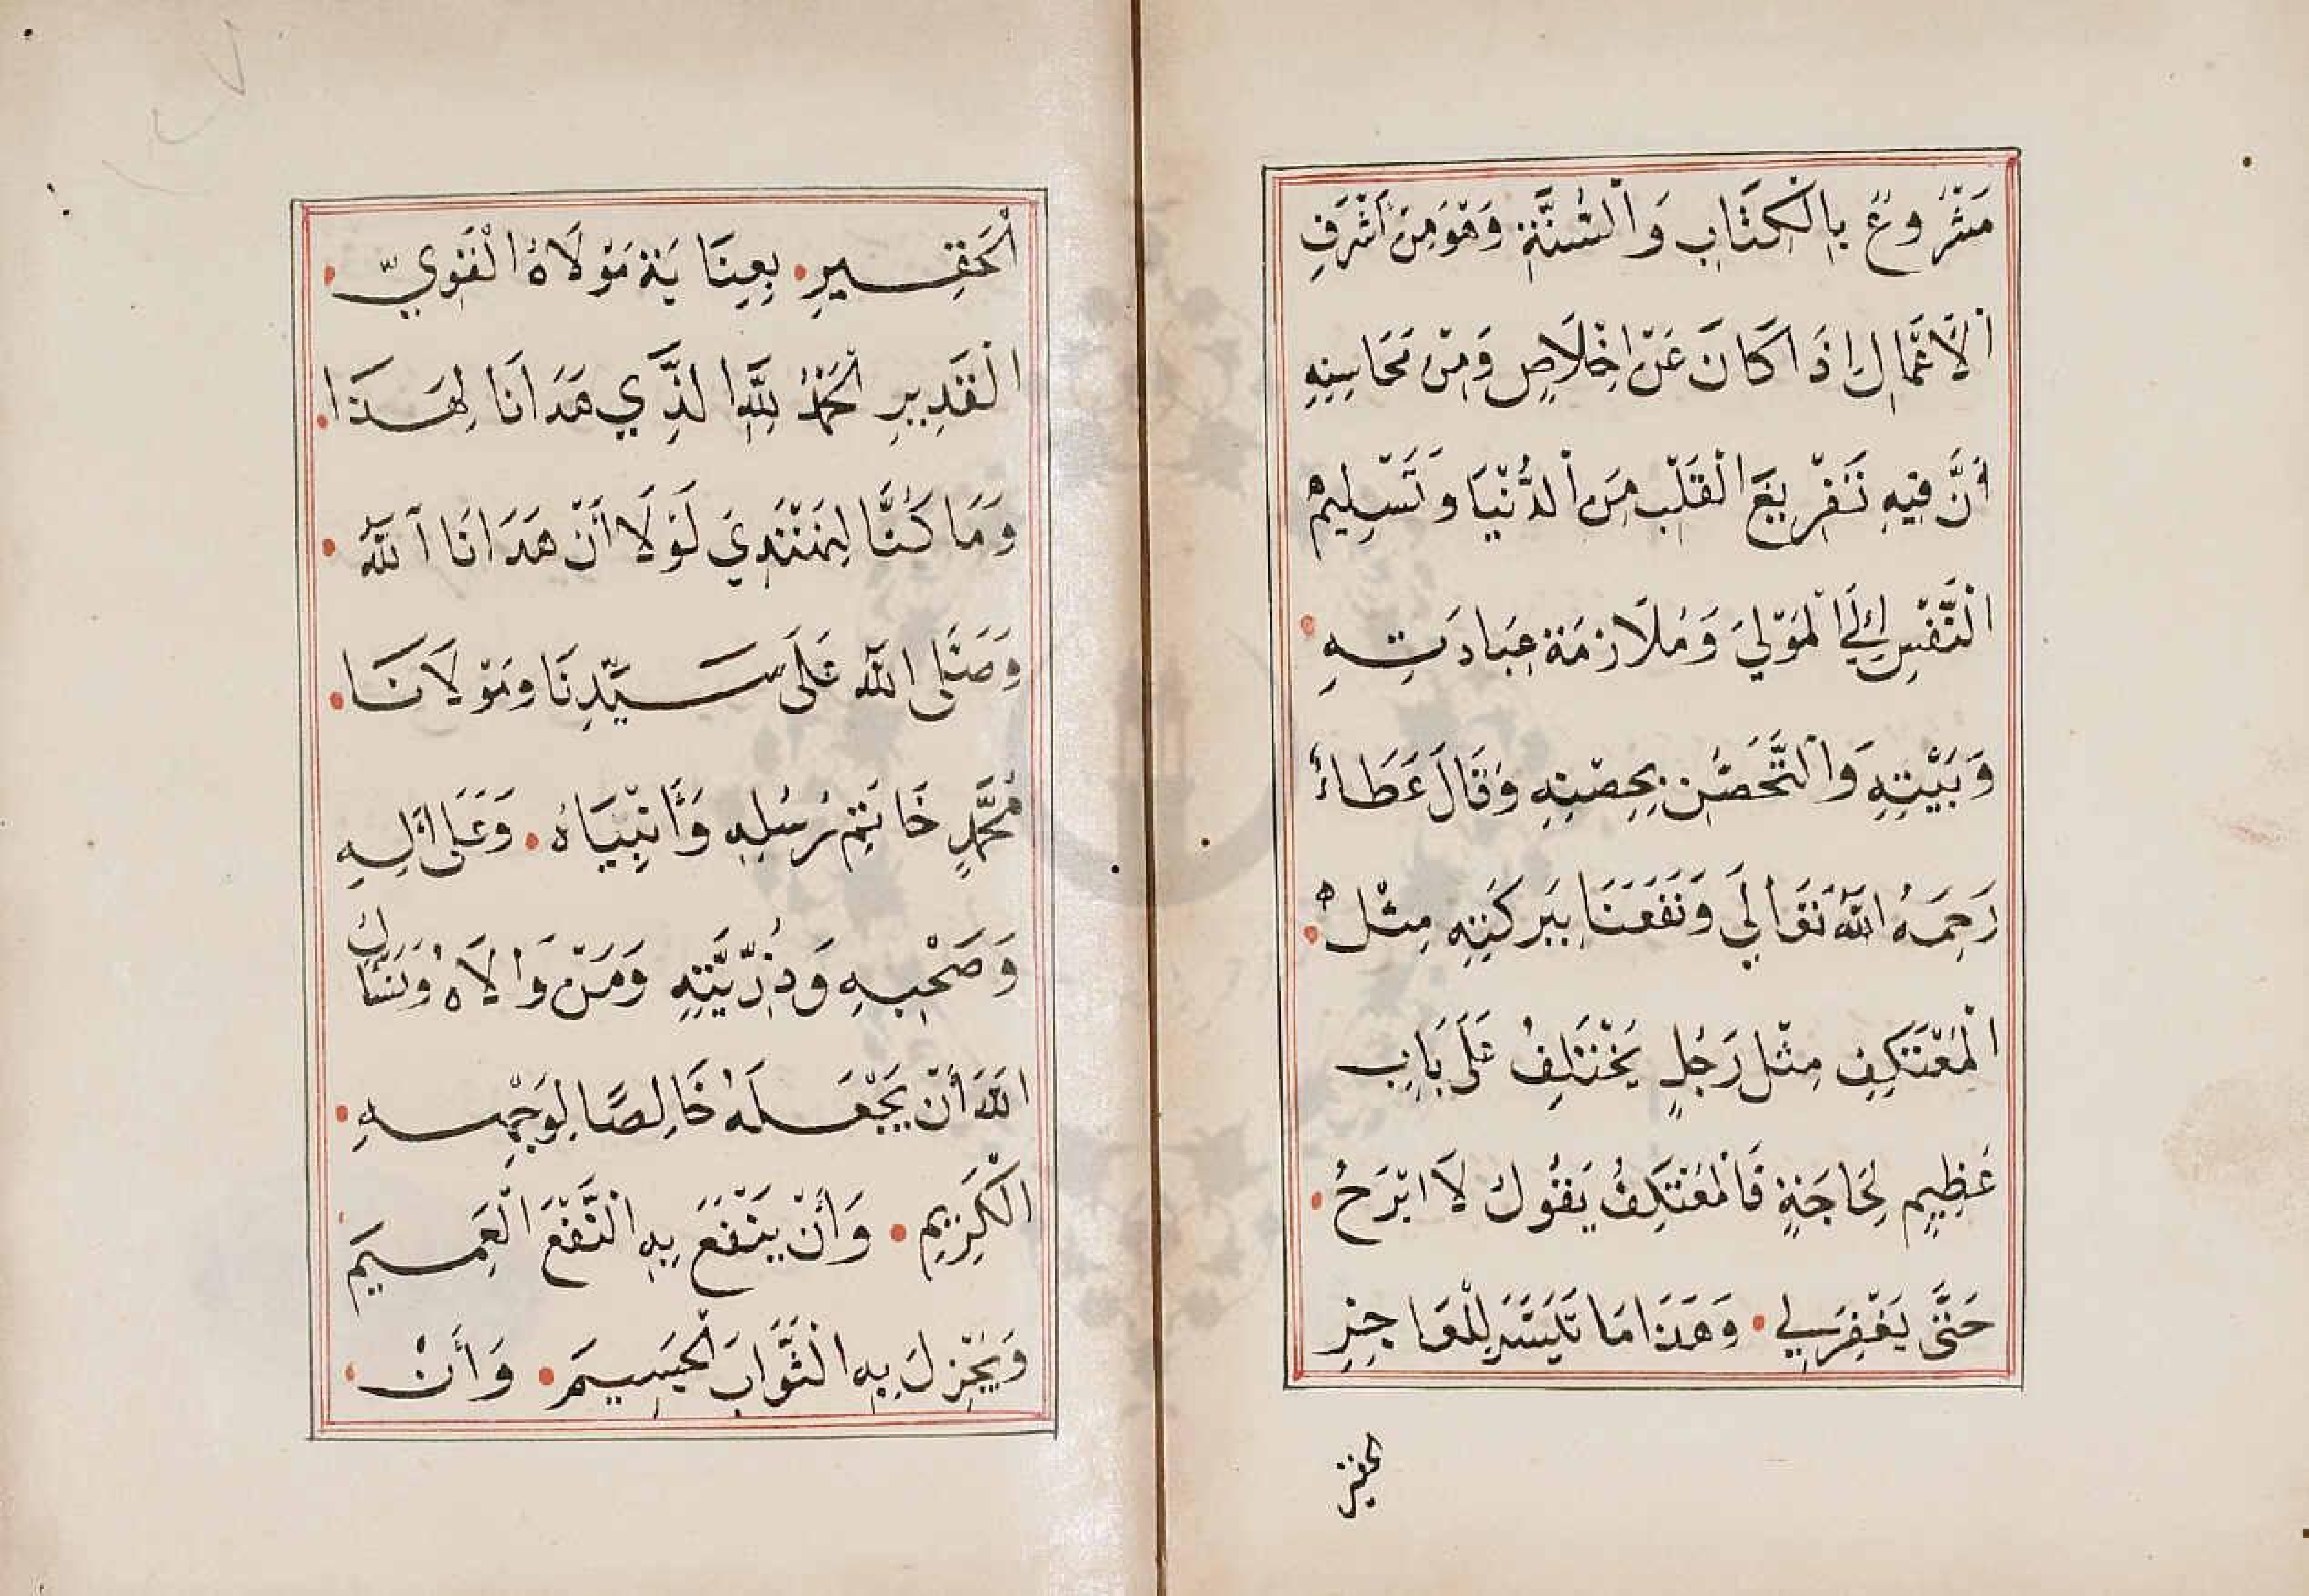 مَشْرُوعٌ بِالْكِتَابِ وَالْسُّنَّةِ وَهُوَ مِنْ أَشْرَفِ
الْأَعْمَالِ إِذَا كَانَ عَنْ إِخْلَاصٍ وَمِنْ مَحَاسِنِهِ
أَنَّ فِيهِ تَفْرِيغَ الْقَلْبِ مِنَ الْدُّنْيَا وَتَسْلِيمِ
الْنَّفْسِ إِلَى الْمَوْلَي وَمُلَازَمَةِ عِبَادَتِهِ
وَبَيْتِهِ وَالْتَّحَصُّنِ بِحِصْنِهِ وَقَالَ عَطَاءٌ
رَحِمَهُ اللهُ تَعَالَي وَنَفَعَنَا بِبَرَكَتِهِ مِثْلُ
الْمُعْتَكِفِ مِثْلُ رَجُلٍ يَخْتَلِفُ عَلَى بَابِ
عَظِيمٍ لِحَاجَةٍ فَالْمُعْتَكِفُ يَقُولُ لَا ابْرَحُ
حَتَّى يَغْفِرَ لِي وَهَذَا مَا تَيَسَّرَ لِلْعَاجِزِ
الحقير
الْحَقِيرِ بِعِنَايَةِ مَوْلَاهُ الْقَوِيِّ
الْقَدِيرِ الْحَمْدُ لِلَّهِ الَّذِي هَدَانَا لِهَذَا
وَمَا كُنَّا لِنَهْتَدِيَ لَوْلَا أَنْ هَدَانَا اللهُ
وَصَلَّى اللهُ عَلَى سَيِّدِنَا وَمَوْلَانَا
مُحَمَّدٍ خَاتِمِ رُسُلِهِ وَأَنْبِيَاهُ وَعَلَى الِهِ
وَصَحْبِهِ وَذُرِّيَّتِهِ وَمَنْ وَالَاهُ وَنَسْأَلُ
اللهَ أَنْ يَجْعَلَهُ خَالِصًا لِوَجْهِهِ
الْكَرِيمِ وَأَنْ يَنْفَعَ بِهِ الْنَّفْعَ الْعَمِيمَ
وَيُجْزِلَ بِهِ الْثَّوَابَ الْجَسِيمَ وَأَنْ